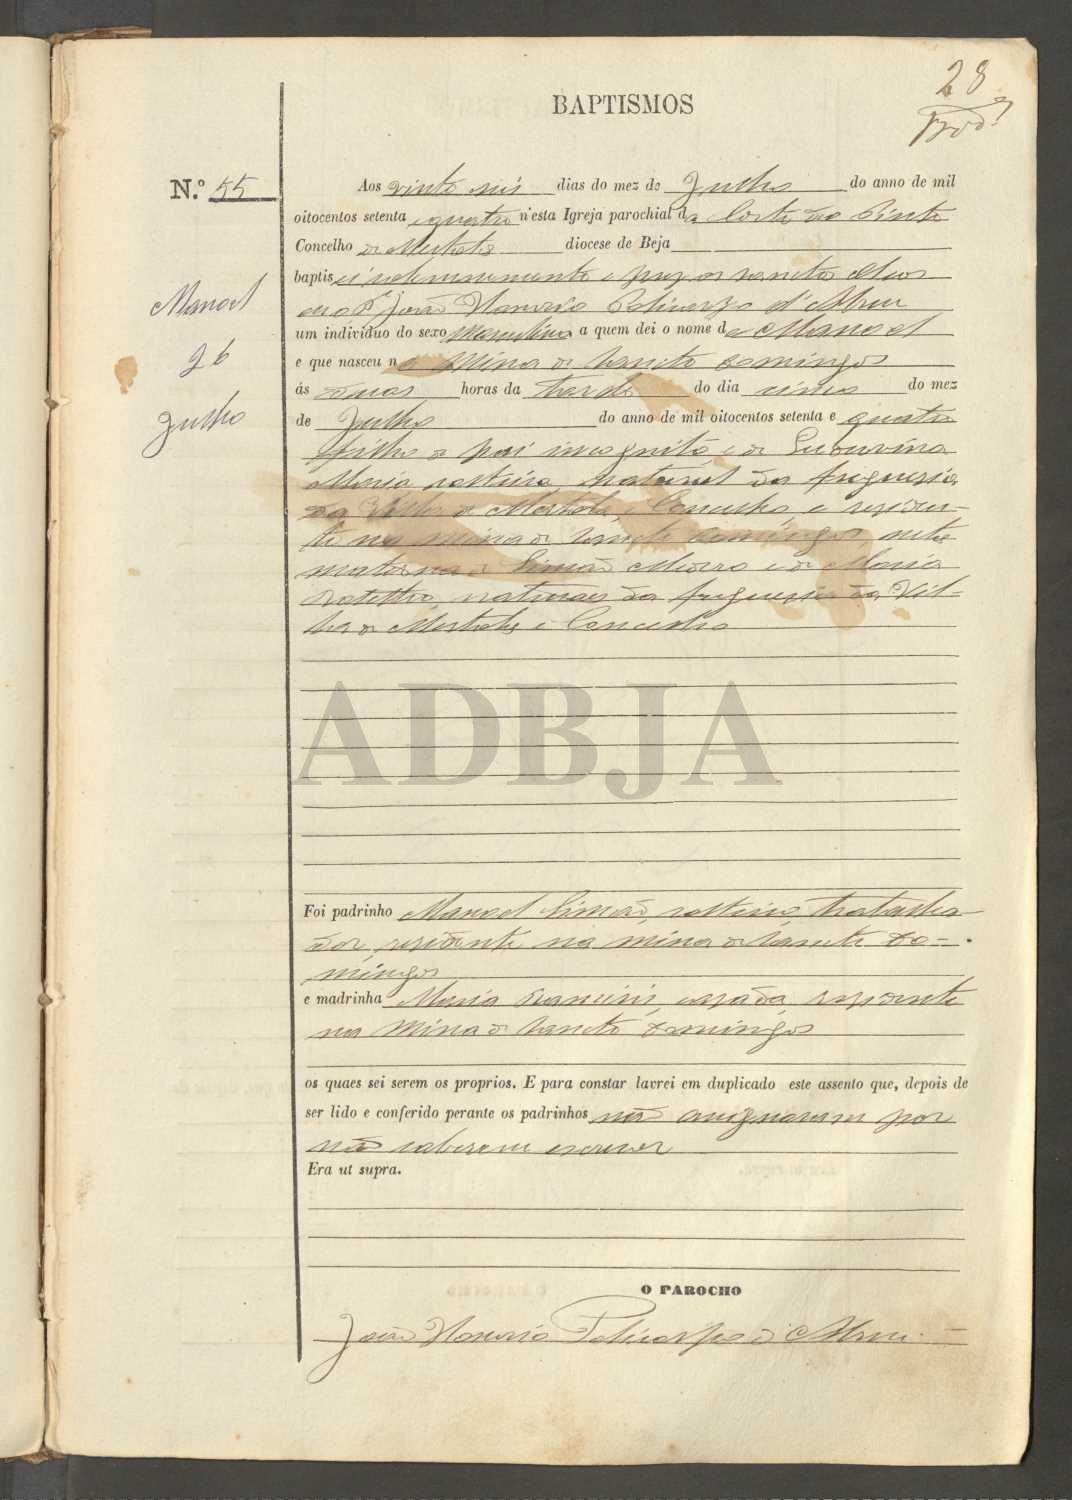 28
BAPTISMOS
N.º 55
Aos vinte seis dias do mez de Julho do anno de mil
oitocentos setenta e quatro n'esta Igreja parochial da Corte do Pinto
Concelho de Mertola diocese de Beja
baptisei solemnemente e puz os sanctos oleos
eu o P.e João Nazario Policarpo d'Abreu
um individuo do sexo masculino a quem dei o nome de Manoel
e que nasceu na Mina de Sancto Domingos
ás duas horas da tarde do dia cinco do mez
de Julho do anno de mil oitocentos setenta e quatro
filho de pai incognito e de
Maria solteira, natural da freguesia
da Villa de Mertola, e Concelho, e residen-
te na Mina de Sancto Domingos, neto
materno de Simão e de Maria
naturaes da freguesia da Vil-
la de Mertola e Concelho
Manoel
26
Julho
ADBJA
Foi padrinho Manoel Simão, solteiro, trabalha-
dor, residente na mina de Sancto Do-
mingos
e madrinha Maria casada, residente
na Mina de Sancto Domingos
os quaes sei serem os proprios. E para constar lavrei em duplicado este assento que, depois de
ser lido e conferido perante os padrinhos não assignaram por
não saberem escrever
Era ut supra.
O PAROCHO
João Nazario Policarpo d'Abreu